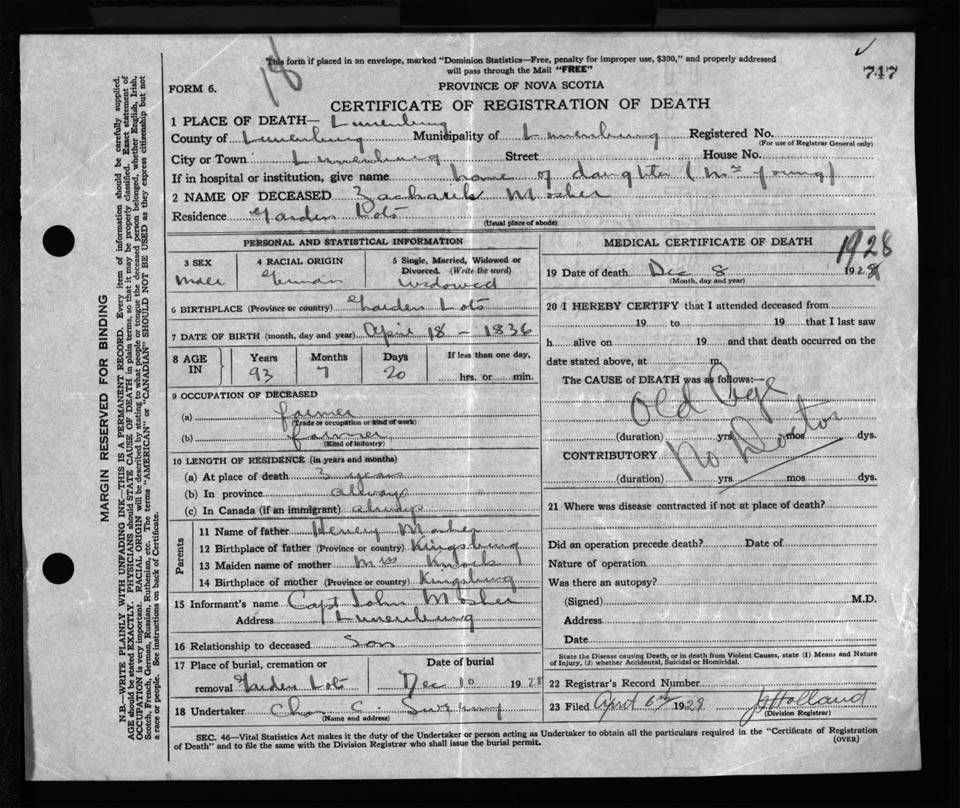 18
This form if placed in an envelope, marked "Dominion Statistics—Free, penalty for improper use, $300," and properly addressed
will pass through the Mail "FREE"
747
FORM 6.
PROVINCE OF NOVA SCOTIA
CERTIFICATE OF REGISTRATION OF DEATH
1 PLACE OF DEATH— Lunenburg
County of Lunenburg Municipality of Lunenburg Registered No.
(For use of Registrar General only)
City or Town Lunenburg Street House No.
If in hospital or institution, give name home of daughter (Mrs Young)
2 NAME OF DECEASED Zacharih Mosher
Residence Garden Lots
(Usual place of abode)
PERSONAL AND STATISTICAL INFORMATION
3 SEX
male
4 RACIAL ORIGIN
German
5 Single, Married, Widowed or
Divorced. (Write the word)
Widowed
6 BIRTHPLACE (Province or country) Garden Lots
7 DATE OF BIRTH (month, day and year) April 18 - 1836
8 AGE
IN
Years
93
Months
7
Days
20
If less than one day,
hrs. or min.
9 OCCUPATION OF DECEASED
(a) farmer
(Trade or occupation or kind of work)
(b) farmer
(Kind of industry)
10 LENGTH OF RESIDENCE (in years and months)
(a) At place of death 3 years
(b) In province allways
(c) In Canada (if an immigrant) always
Parents
11 Name of father Henery Mosher
12 Birthplace of father (Province or country) Kingsburg
13 Maiden name of mother Miss Knock
14 Birthplace of mother (Province or country) Kingsburg
15 Informant's name Capt John Mosher
Address Lunenburg
16 Relationship to deceased Son
17 Place of burial, cremation or
removal Garden Lots
Date of burial
Dec 10 1928
18 Undertaker Chas C.
(Name and address)
MEDICAL CERTIFICATE OF DEATH
1928
19 Date of death Dec 8 1928
(Month, day and year)
20 I HEREBY CERTIFY that I attended deceased from
19 to 19 that I last saw
h alive on 19 and that death occurred on the
date stated above, at m.
The CAUSE of DEATH was as follows:—
Old Age
(duration) yrs. mos. dys.
CONTRIBUTORY No Doctor
(duration) yrs mos dys.
21 Where was disease contracted if not at place of death?
Did an operation precede death? Date of
Nature of operation
Was there an autopsy?
(Signed) M.D.
Address
Date
State the Disease causing Death, or in death from Violent Causes, state (1) Means and Nature
of Injury, (2) whether Accidental, Suicidal or Homicidal.
22 Registrar's Record Number
23 Filed April 6th 1929 J Holland
(Division Registrar)
SEC. 46—Vital Statistics Act makes it the duty of the Undertaker or person acting as Undertaker to obtain all the particulars required in the "Certificate of Registration
of Death" and to file the same with the Division Registrar who shall issue the burial permit.
(OVER)
MARGIN RESERVED FOR BINDING
N.B.—WRITE PLAINLY WITH UNFADING INK—THIS IS A PERMANENT RECORD. Every item of information should be carefully supplied.
AGE should be stated EXACTLY. PHYSICIANS should STATE CAUSE OF DEATH in plain terms, so that it may be properly classified. Exact statement of
OCCUPATION is very important. RACIAL ORIGIN will be described by stating to what people or tongue the deceased person belonged, whether English, Irish,
Scotch, French, German, Russian, Ruthenian, etc. The terms "AMERICAN" or "CANADIAN" SHOULD NOT BE USED as they express citizenship but not
a race or people. See instructions on back of Certificate.